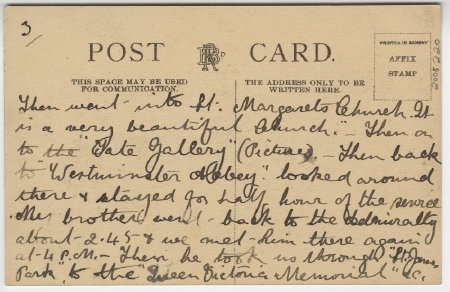 3
POST CARD.
PRINTED IN SAXONY
AFFIX
STAMP
THIS SPACE MAY BE USED
FOR COMMUNICATION.
THE ADDRESS ONLY TO BE
WRITTEN HERE.
Then went into St. Margarets Church It
is a very beautiful Church. - Then on
to the "Tate Gallery" (Pictures) - Then back
to "Westminster Abbey" looked around
there & stayed for half hour of the service
My brother went back to the admiralty
about 2.45 & we met him there again
at 4 P.M. - Then he took us through "St James
Park", to the "Queen Victoria Memorial" &c.